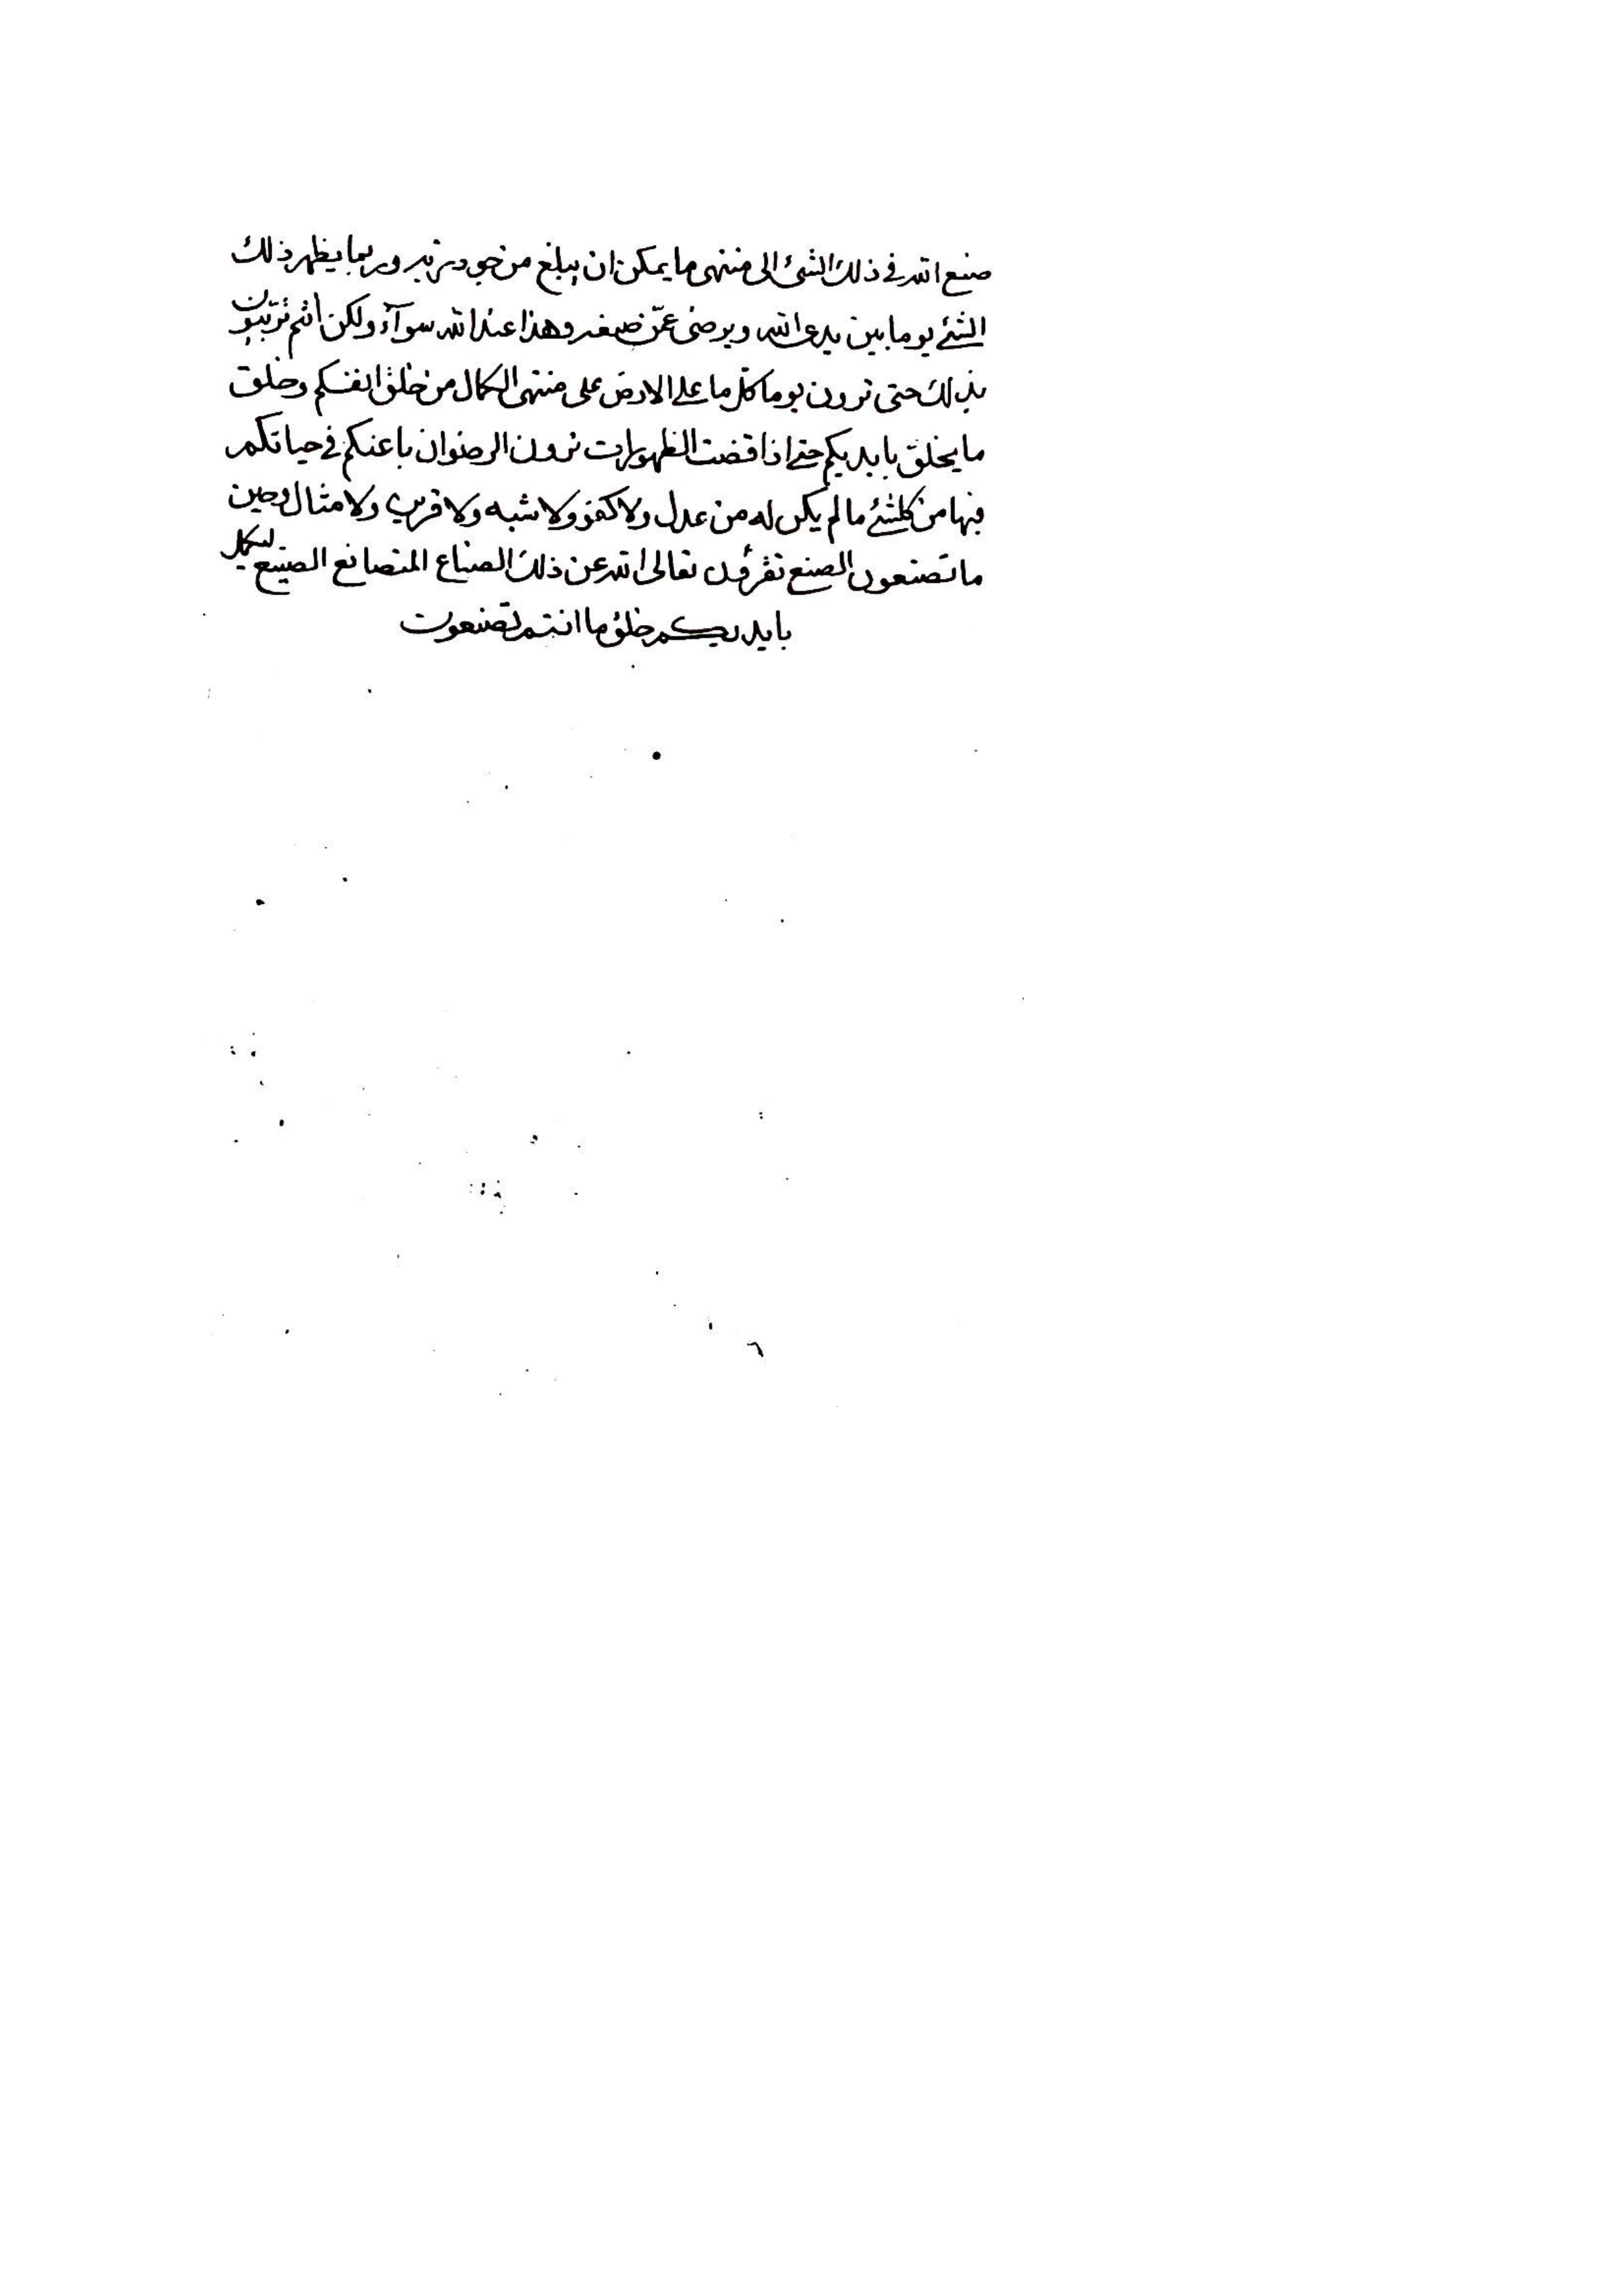 صنع الله فى ذلك الشئ الى منتهى ما يمكن ان يبلغ من جوديرتبه وربما يظهر ذلك
الشئ يوما بين يدى الله ويرضى عمّن صنعه وهذا عند الله سوآء ولكن أنتم تربّيون
بذلك حتى ترون يوما كل ما على الارض على منتهى الكمال من خلق انفسكم وخلق
ما يخلق بايديكم حتى اذا قضت الظهورات ترون الرضوان باعينكم فى حياتكم
فيها من كلشئ ما لم يكن له من عدل ولا كفو ولا شبه ولا قرين ولا مثال وحين
ما تصنعون الصنع تقرؤن تعالى الله عن ذلك الصناع المتصانع الصنيع ليكمل
بايديكم خلق ما انتم تصنعون